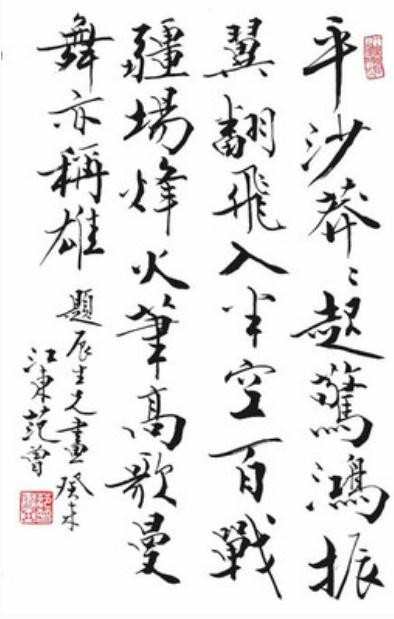 平沙莽〻起驚鴻振
翼翻飛入半空百戰
疆場烽火筆高歌曼
舞亦稱雄
題辰生兄畫癸未
江東范曾